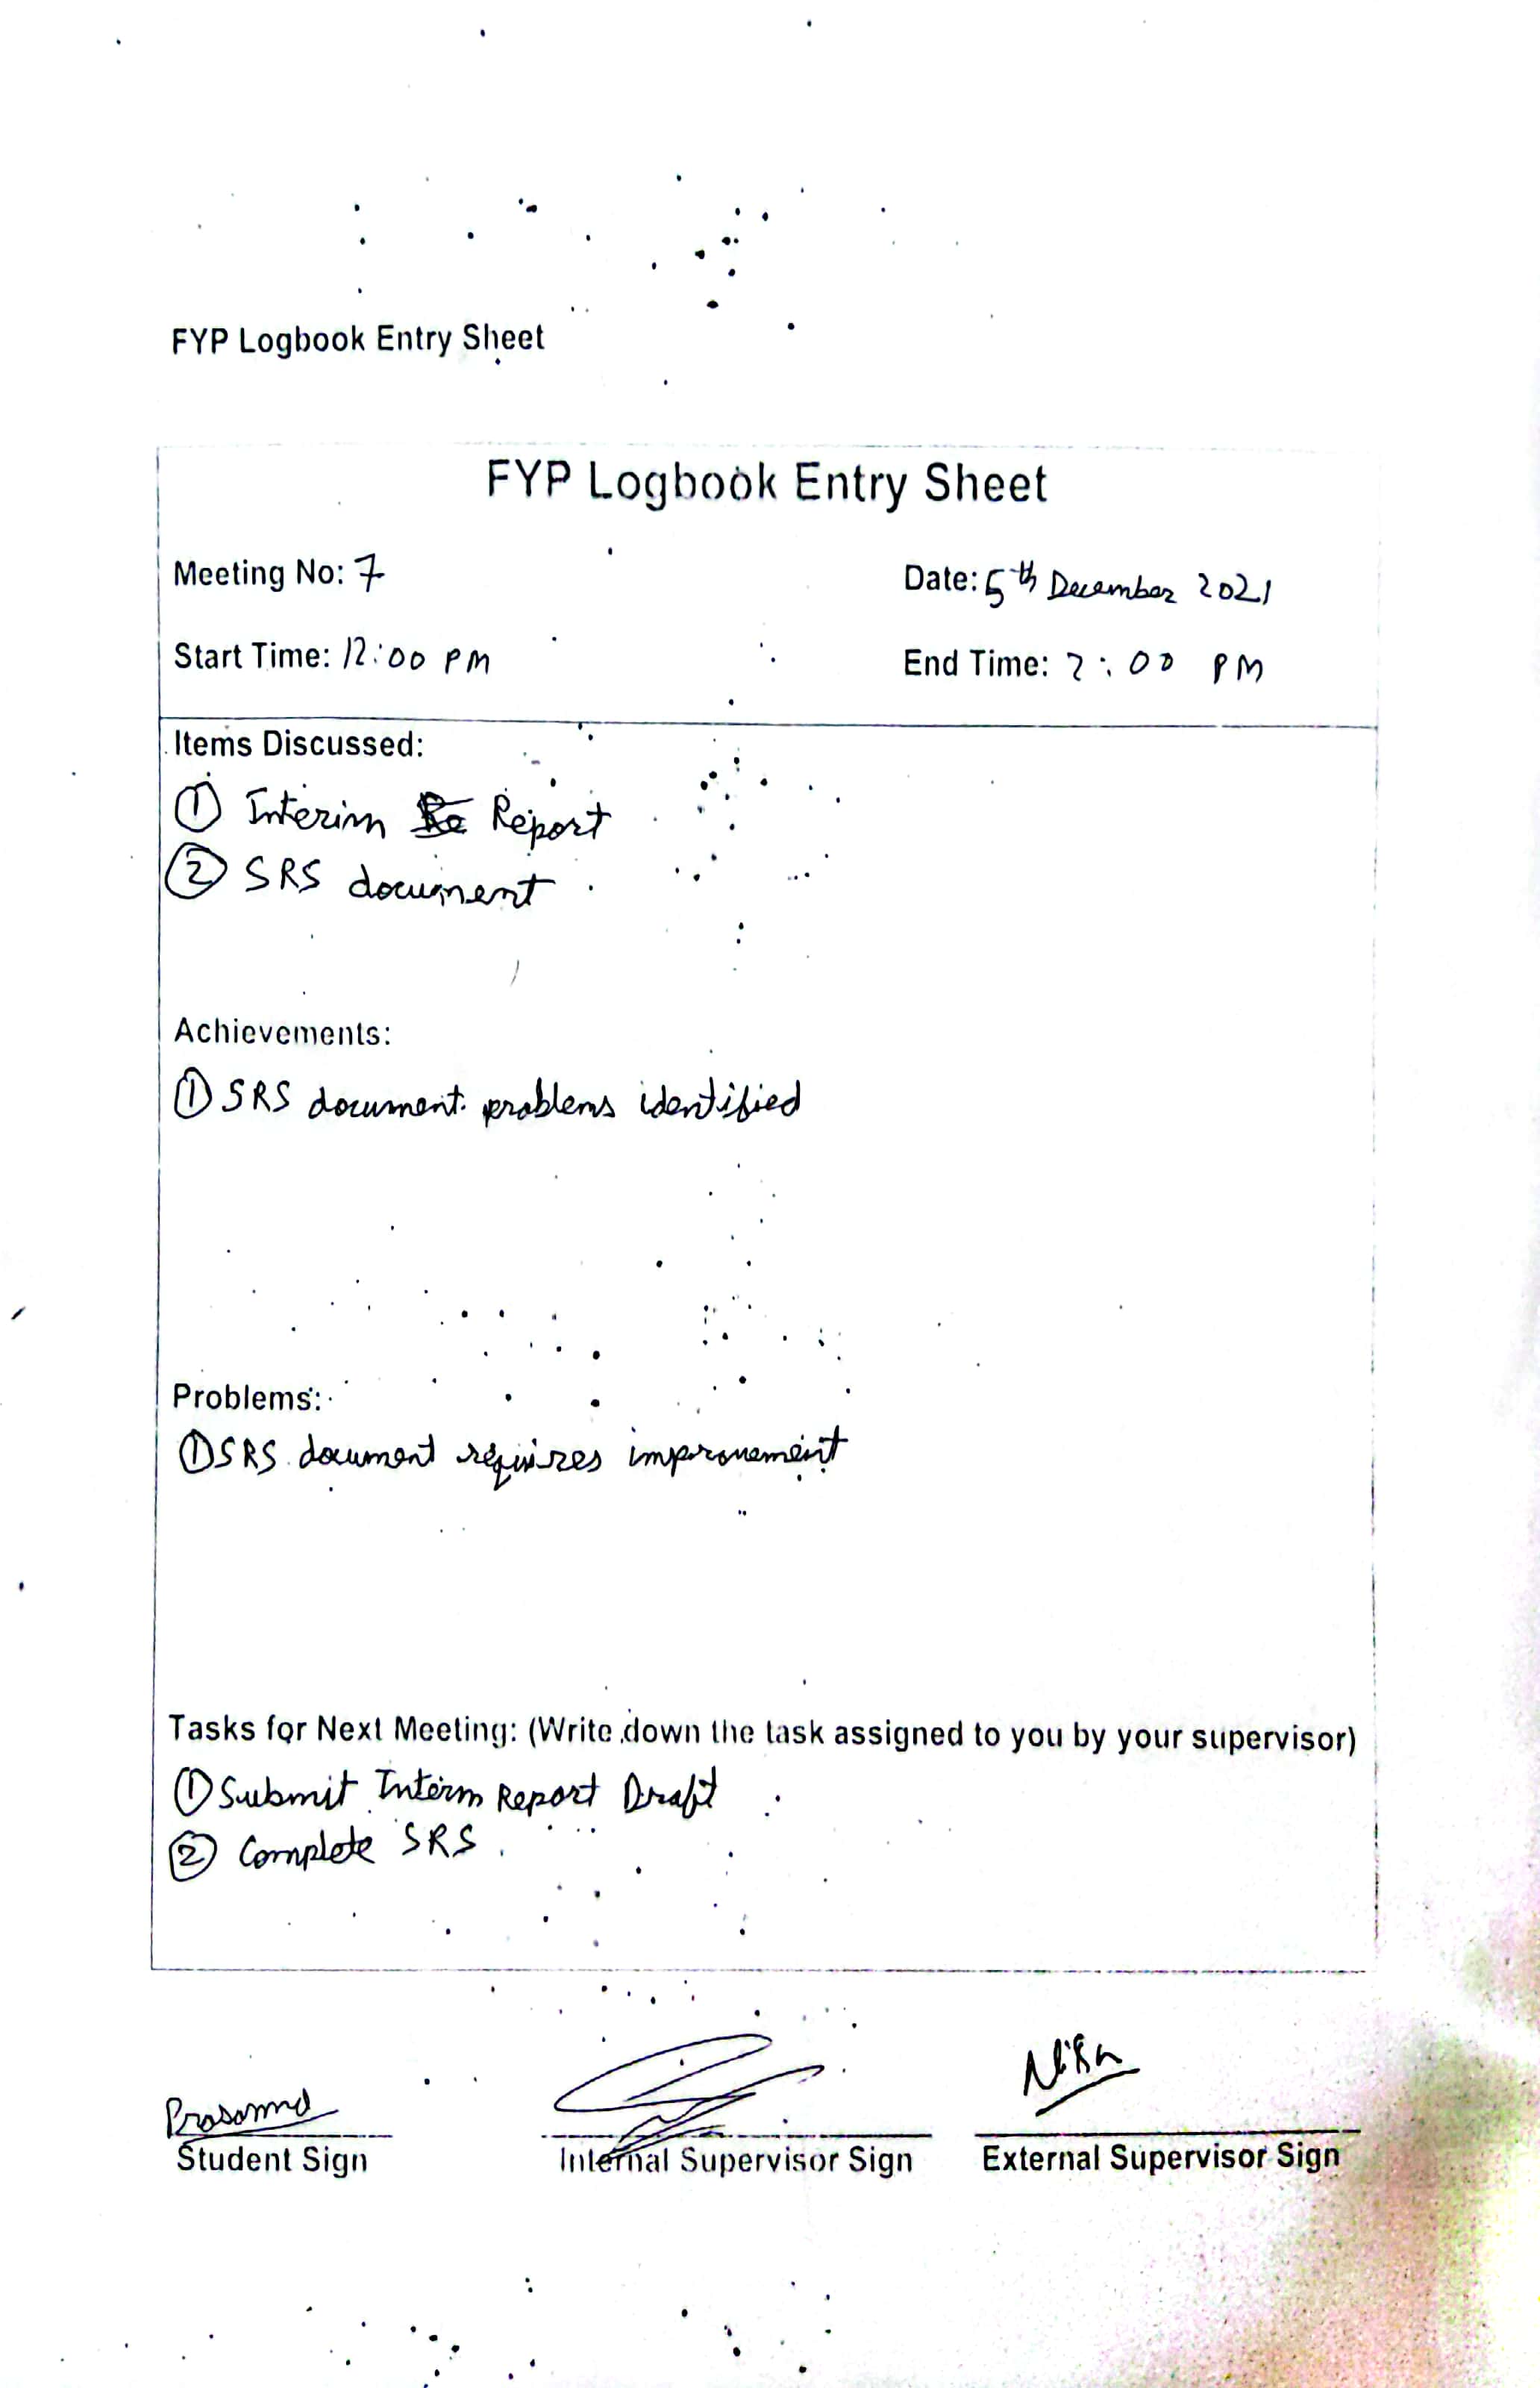 FYP Logbook Entry Sheet
FYP Logbook Entry Sheet
Meeting No: 7
Date: 5th December 2021
Start Time: 12:00 PM
End Time: 2:00 PM
Items Discussed:
① Interim Re Report
② SRS document
Achievements:
① SRS document problems identified
Problems:
① SRS document requires improvement
Tasks for Next Meeting: (Write down the task assigned to you by your supervisor)
① Submit Interm Report Draft
② Complete SRS.
Prasanna
Student Sign
Internal Supervisor Sign
External Supervisor Sign